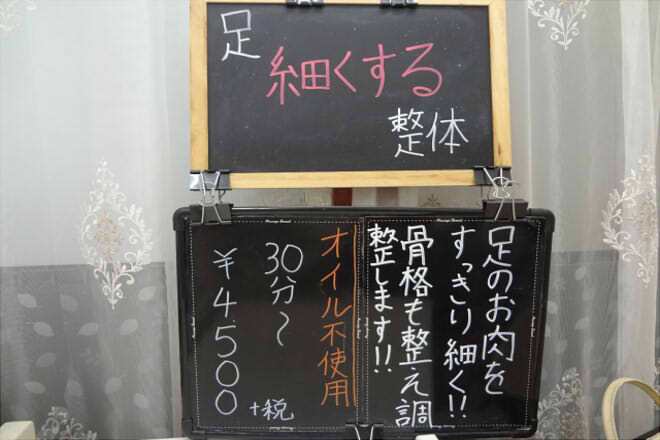 足
細くする
整体
足のお肉を
すっきり細く!!
骨格も整え調
整します!!
オイル不使用
30分〜
¥4,500
+税